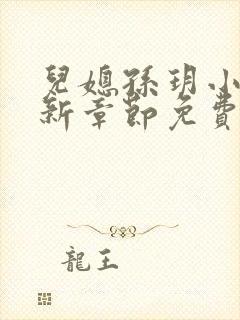 兒媳孫玥小
新章節免費
龍王